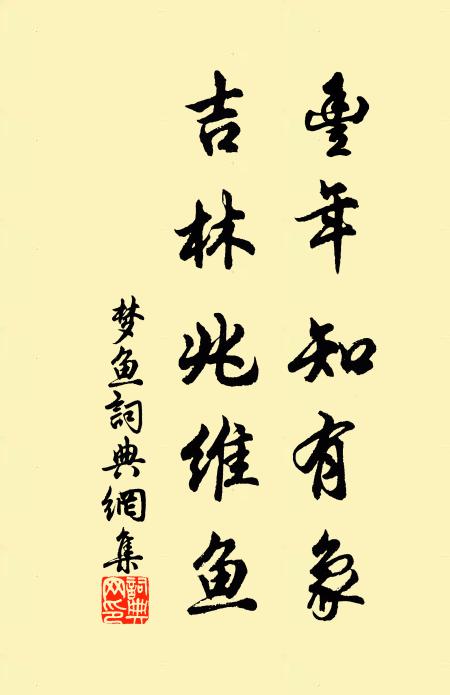 豐年知有象
吉林兆維鱼
梦鱼詞典網集
詞典网印